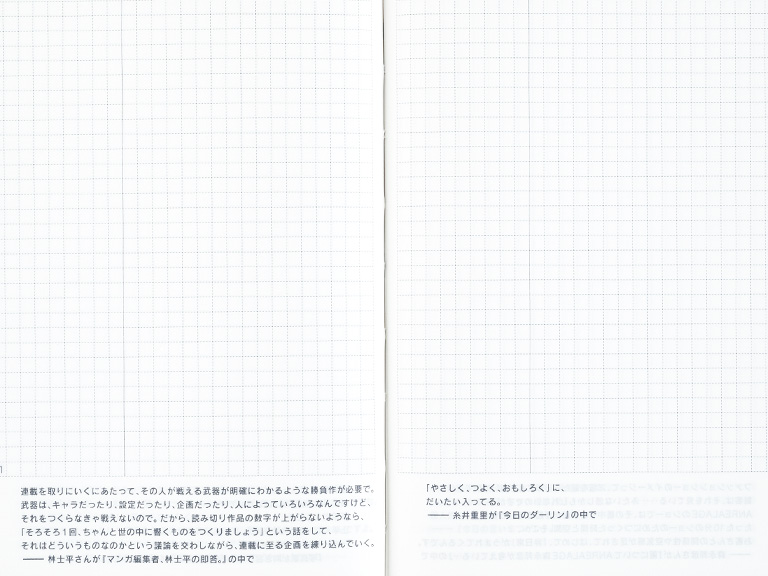 1
連載を取りにいくにあたって、その人が戦える武器が明確にわかるような勝負作が必要で。
武器は、キャラだったり、設定だったり、企画だったり、人によっていろいろなんですけど、
それをつくらなきゃ戦えないので。だから、読み切り作品の数字が上がらないようなら、
「そろそろ1回、ちゃんと世の中に響くものをつくりましょう」という話をして、
それはどういうものなのかという議論を交わしながら、連載に至る企画を練り込んでいく。
—— 林士平さんが『マンガ編集者、林士平の印答。』の中で
「やさしく、つよく、おもしろく」に、
だいたい入ってる。
—— 糸井重里が『今日のダーリン』の中で